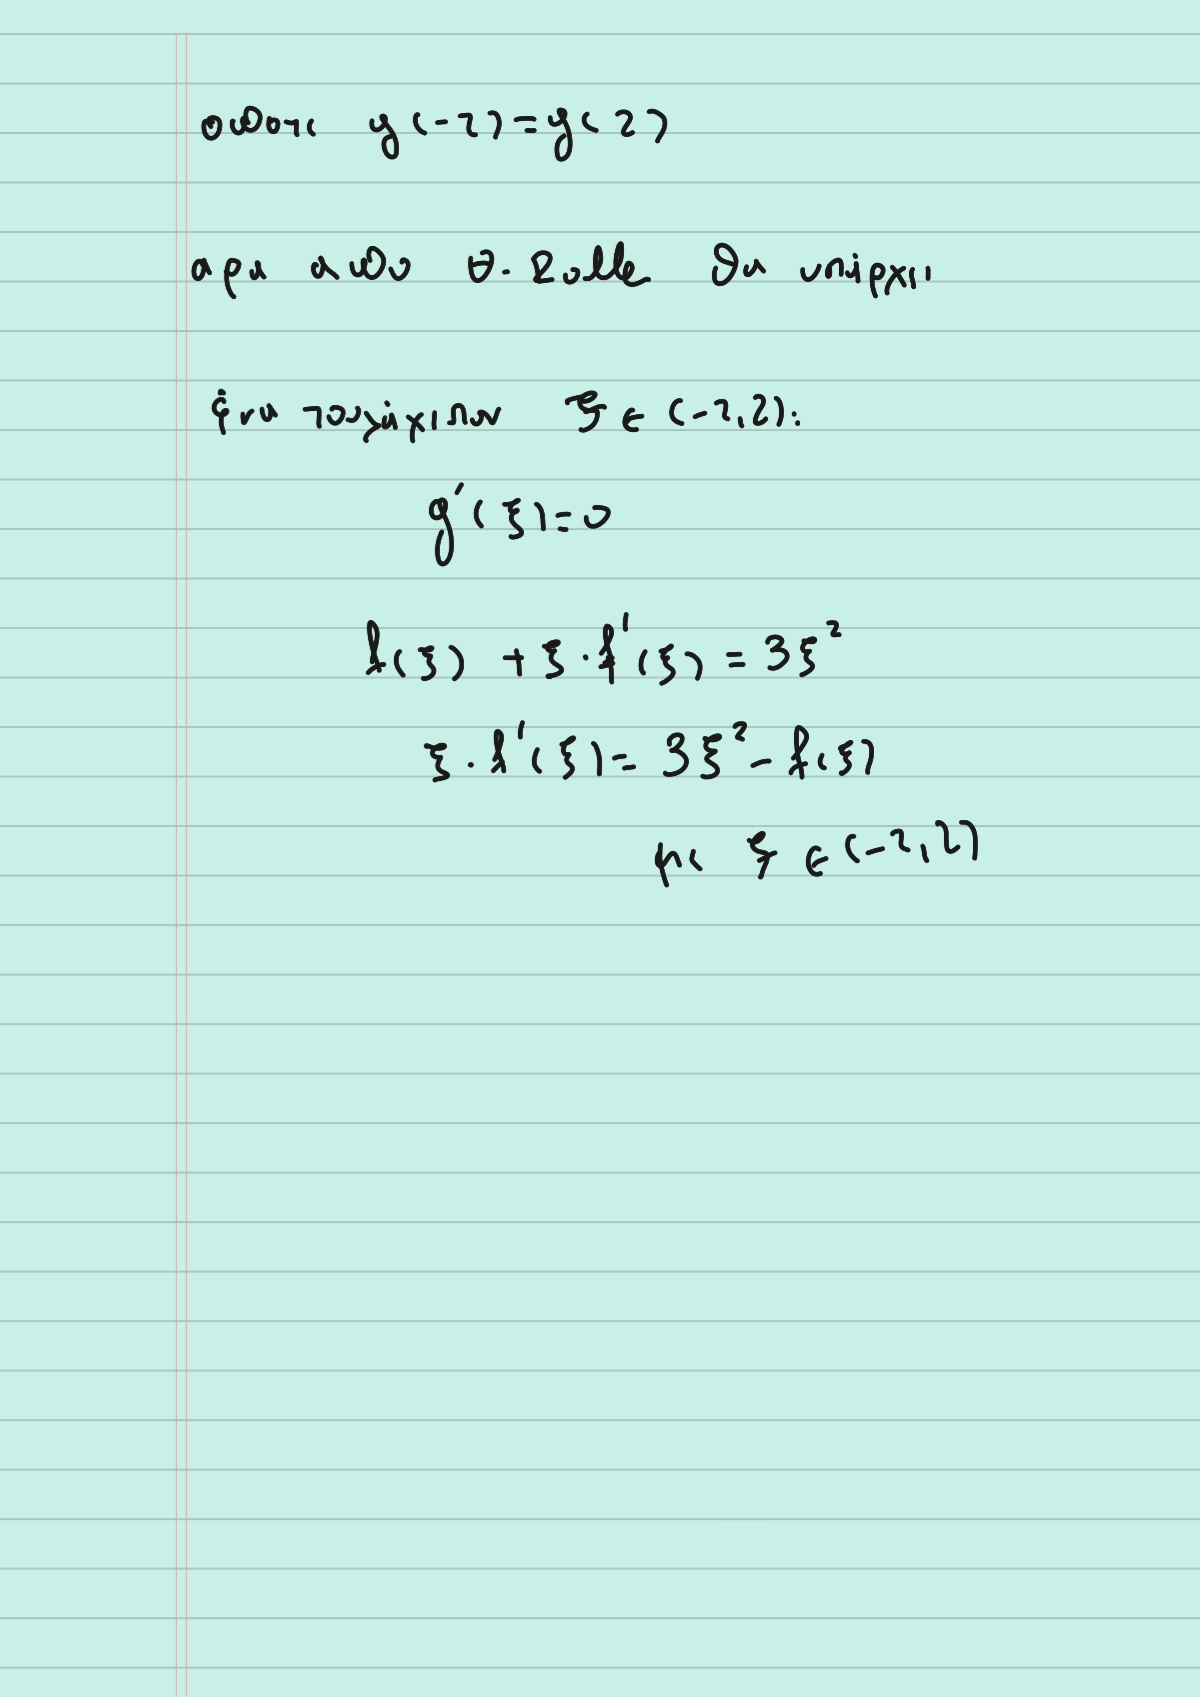 οποτε g(-2)=g(2)
αρα απο Θ. Rolle θα υπάρχει
ένα τουλάχιστον ξ ∈ (-2,2):
g'(ξ)=0
f(ξ) + ξ·f'(ξ) = 3ξ²
ξ·f'(ξ) = 3ξ² - f(ξ)
με ξ ∈ (-2,2)